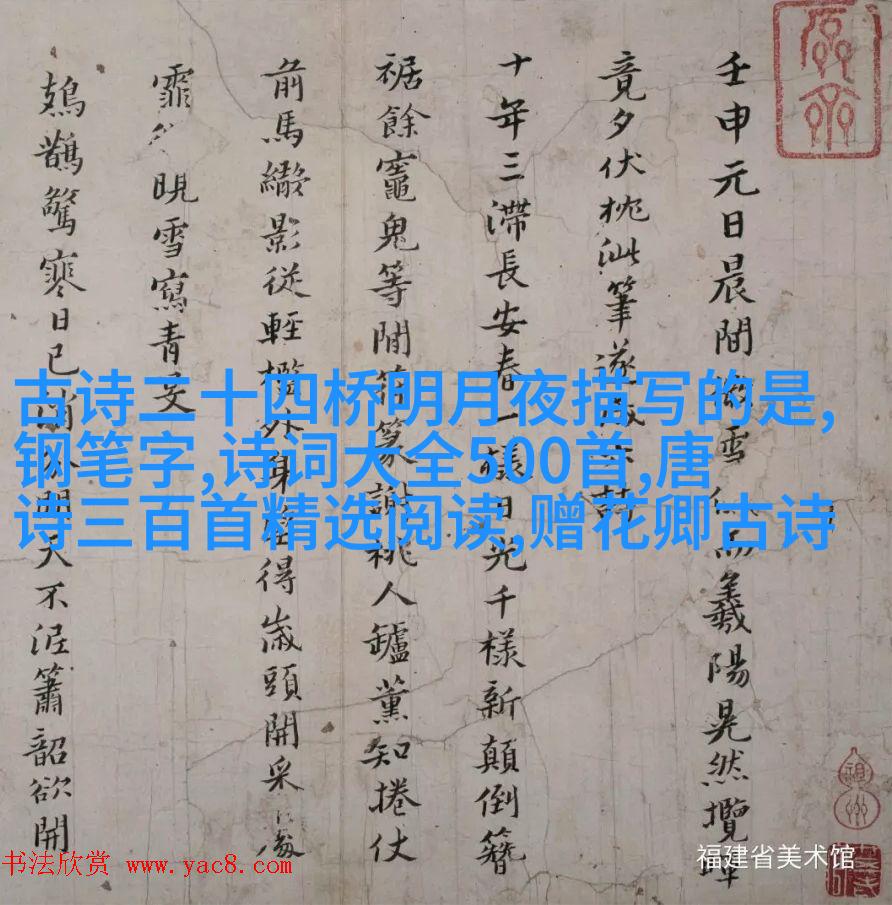 壬申元日晨間雪而羲陽晃然攬
竟夕伏枕泚筆遂
十年三滯長安春一樣日光千樣新顛倒簪
裾餘竈鬼等閒篆謝祧人鑪薰知捲仗
前馬影從輕檻外身得歲頭開采
霏晛雪寫青旻
鵲驚寒日已明天不簫韶欲開
古诗二十四桥明月夜描写的是,
钢笔字,诗词大全500首,唐
诗三百首精选阅读,赠花卿古诗
福建省美术馆
书法欣赏 www.yac8.com